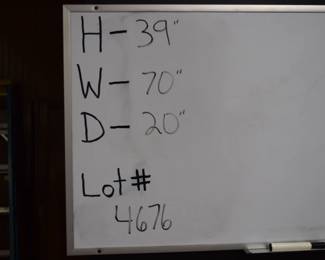 H-39"
W-70"
D-20"
Lot#
4676